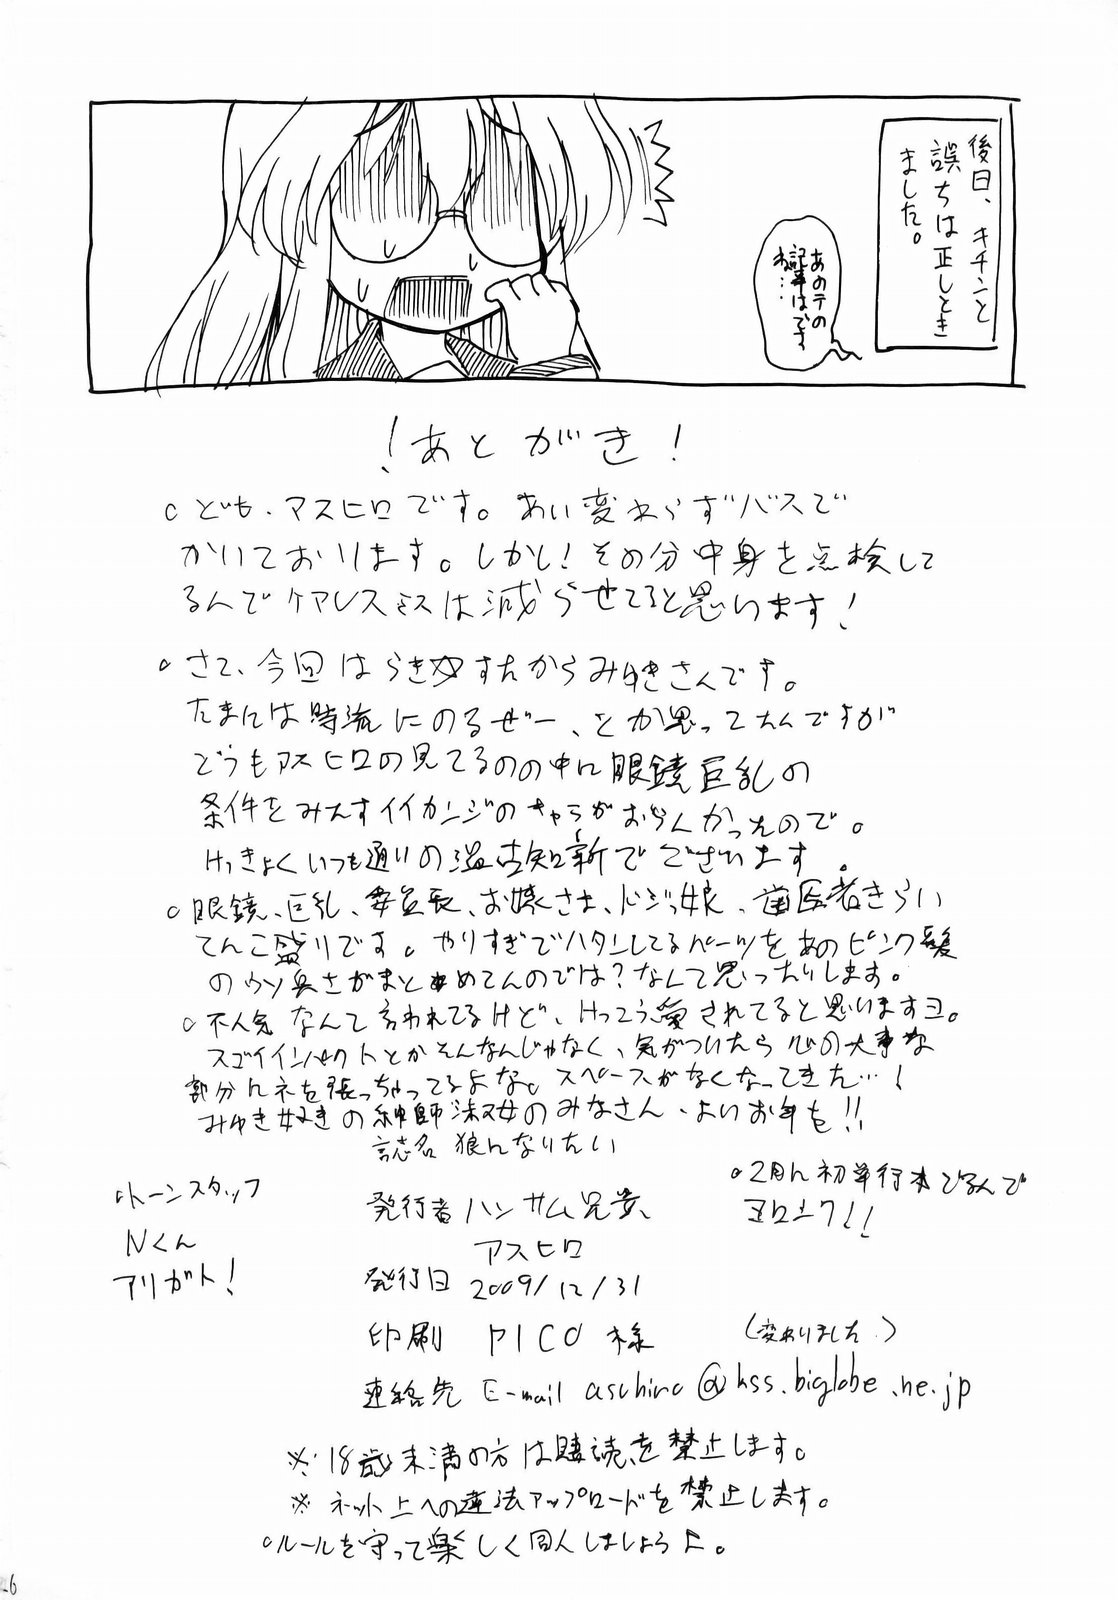 後日、キチンと
誤ちは正しとき
ました。
あのテの
記事はです
ね…
!あとがき!
○ども、アスヒロです。あい変わらずバスで
かいております。しかし!その分中身を点検して
るんでケアレスミスは減らせてると思います!
○さて、今回はらき☆すたからみゆきさんです。
たまには時流にのるぜー、とか思ってたんですが
どうもアスヒロの見てるのの中に眼鏡巨乳の
条件をみたすイイカンジのキャラがおらんかったので。
けっきょくいつも通りの温古知新でございます。
○眼鏡、巨乳、委員長、お嬢さま、ドジっ娘、歯医者きらい
てんこ盛りです。やりすぎでハタンしてるパーツをあのピンク髪
のウソ臭さがまとめてんのでは?なんて思ったりします。
○不人気なんて言われてるけど、けっこう愛されてると思いますヨ。
スゴイインパクトとかそんなんじゃなく、気がついたら心の大事な
部分に根を張っちゃってるよな。スペースがなくなってきた…!
みゆき好きの紳師淑女のみなさん、よいお年を!!
誌名 狼になりたい
○トーンスタッフ
Nくん
アリガト!
発行者 ハンサム兄貴、
アスヒロ
○2月に初単行本でるんで
ヨロシク!!
発行日 2009/12/31
印刷 PICO様
(変わりました。)
連絡先 E-mail asuhiro@kss.biglobe.ne.jp
※18歳未満の方は購読を禁止します。
※ネット上への違法アップロードを禁止します。
○ルールを守って楽しく同人しましょうよ。